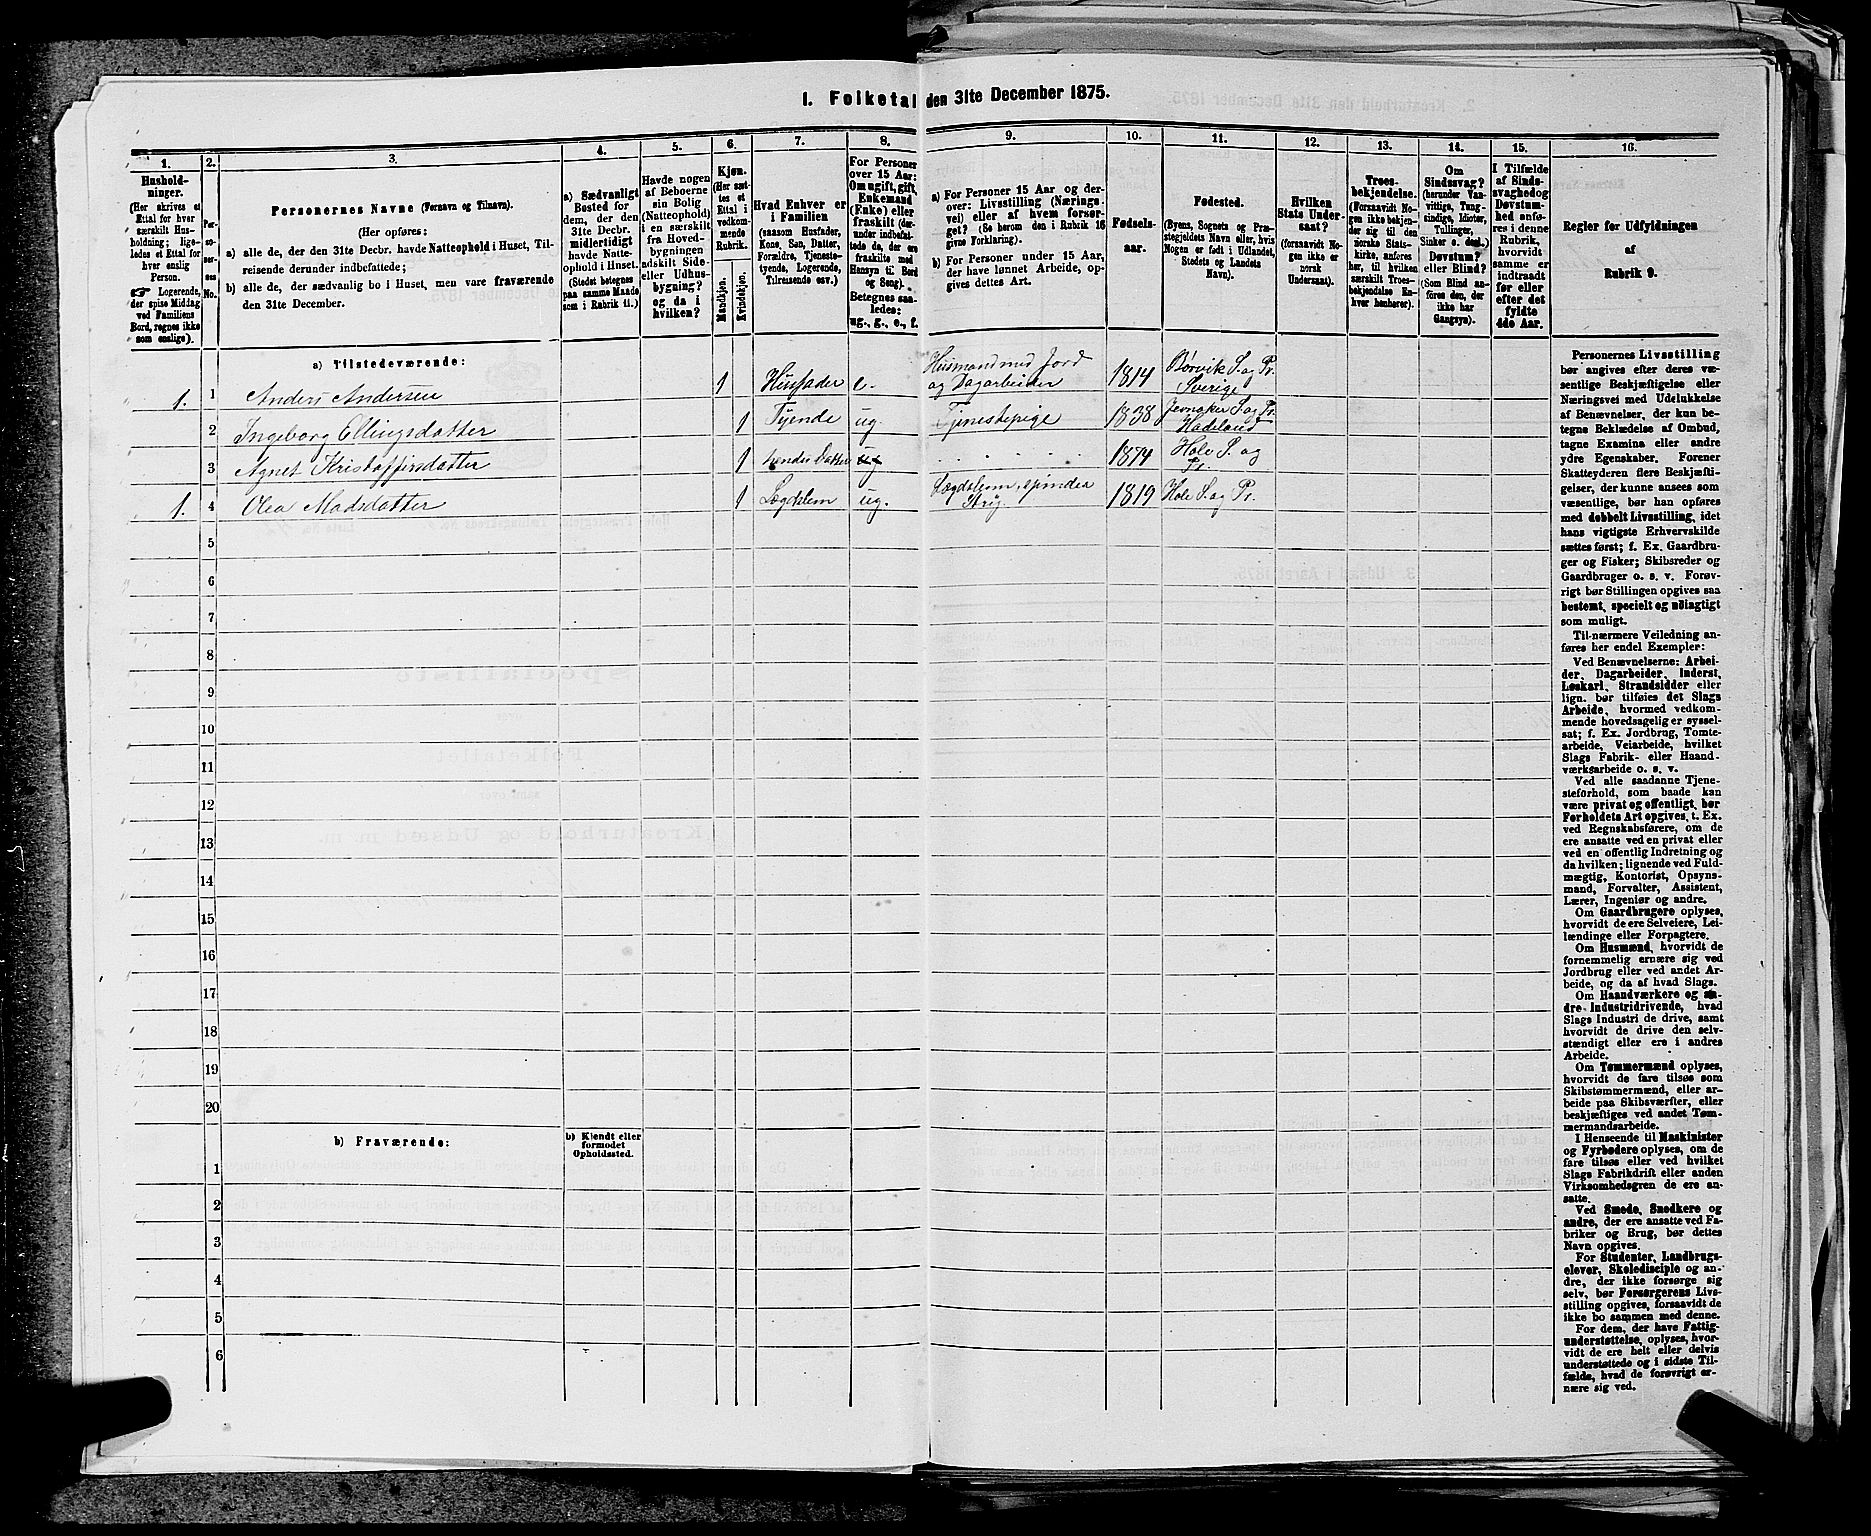 I. Folketal den 31te December 1875.
1.
2.
3.
4.
5.
6.
7.
8.
9.
10.
11.
12.
13.
14.
15.
16.
Hushold-
ninger.
(Her skrives et
Ettal for hver
særskilt Hus-
holdning; lige-
ledes et Ettal for
hver enslig
Person.
☞ Logerende,
der spise Middag
ved Familiens
Bord, regnes ikke
som enslige).
Per-
so-
ner-
nes
No.
Personernes Navne (Fornavn og Tilnavn).
(Her opføres:
a) alle de, der den 31te Decbr. havde Natteophold i Huset, Til-
reisende derunder indbefattede;
b) alle de, der sædvanlig bo i Huset, men vare fraværende
den 31te December.
a) Sædvanligt
Bosted for
dem, der den
31te Decbr.
midlertidigt
havde Natte-
ophold i Huset.
(Stedet betegnes
paa samme Maade
som i Rubrik 11.)
Havde nogen
af Beboerne
sin Bolig
(Natteophold)
i en særskilt
fra Hoved-
bygningen
adskilt Side-
eller Udhus-
bygning?
og da i
hvilken?
Kjøn.
(Her sæt-
tes et
Ettal i
vedkom-
mende
Rubrik.
Mandkjøn.
Kvindekjøn.
Hvad Enhver er
i Familien
(saasom Husfader,
Kone, Søn, Datter,
Forældre, Tjeneste-
tyende, Logerende,
Tilreisende osv.)
For Personer
over 15 Aar:
Om ugift, gift,
Enkemand
(Enke) eller
fraskilt (der-
under indbefat-
tede de, der ere
fraskilte med
Hensyn til Bord
og Seng).
Betegnes saa-
ledes:
ug., g., e., f.
a) For Personer 15 Aar og der-
over: Livsstilling (Nærings-
vei) eller af hvem forsør-
get? (Se herom den i Rubrik 16
givne Forklaring).
b) For Personer under 15 Aar,
der have lønnet Arbeide, op-
gives dettes Art.
Fødsels-
aar.
Fødested.
(Byens, Sognets og Præ-
stegjeldets Navn eller, hvis
Nogen er født i Udlandet,
Stedets og Landets
Navn).
Hvilken
Stats Under-
saat?
(forsaavidt No-
gen ikke er
norsk
Undersaat).
Troes-
bekjendelse.
(Forsaavidt No-
gen ikke bekjen-
der sig til den
norske Stats-
kirke, anføres
her, til hvilken
særskilt Troes-
bekjendelse En-
hver henhører).
Om
Sindssvag?
(herunder Van-
vittige, Tung-
sindige, Idioter,
Tullinger,
Sinker o. desl.)
Døvstum?
eller Blind?
(Som Blind an-
føres den, der
ikke har
Gangsyn).
I Tilfælde
af Sinds-
svaghed og
Døvstum-
hed anfø-
res i denne
Rubrik,
hvorvidt
samme er
indtraadt
før eller
efter det
fyldte
4de Aar.
Regler for Udfyldningen
af
Rubrik 9.
a) Tilstedeværende:
1. 1 Anders Andersen 1 Husfader e. Husmand med Jord og Dagarbeider 1814 Børvik S. og Pr. Sverige
2 Ingeborg Ellingsdatter 1 Tyende ug. Tjenestepige 1838 Jevnaker S. og Pr. Hadeland
3 Agnet Kristoffersdatter 1 hendes Datter ug 1874 Hole S. og Pr.
1. 4 Olea Madsdatter 1 Lægdslem ug. Lægdslem, spinder Strig. 1819 Hole S. og Pr.
5
6
7
8
9
10
11
12
13
14
15
16
17
18
19
20
b) Fraværende:
b) Kjendt eller
formodet
Opholdssted.
1
2
3
4
5
6
Personernes Livsstilling
bør angives efter deres væ-
sentlige Beskjæftigelse eller
Næringsvei med Udelukkelse
af Benævnelser, der kun be-
tegne Beklædelse af Ombud,
tagne Examina eller andre
ydre Egenskaber. Forener
Skatteyderen flere Beskjæfti-
gelser, der kunne ansees som
væsentlige, bør han opføres
med dobbelt Livsstilling, idet
hans vigtigste Erhvervskilde
sættes først; f. Ex. Gaardbru-
ger og Fisker; Skibsreder og
Gaardbruger o. s. v. Forøv-
rigt bør Stillingen opgives saa
bestemt, specielt og nøiagtigt
som muligt.
Til nærmere Veiledning an-
føres her endel Exempler:
Ved Benævnelserne: Arbei-
der, Dagarbeider, Inderst,
Løskarl, Strandsidder eller
lign. bør tilføies det Slags
Arbeide, hvormed vedkom-
mende hovedsagelig er syssel-
sat; f. Ex. Jordbrug, Tomte-
arbeide, Veiarbeide, hvilket
Slags Fabrik- eller Haand-
værksarbeide o. s. v.
Ved alle saadanne Tjene-
steforhold, som baade kan
være privat og offentligt, bør
Forholdets Art opgives, t. Ex.
ved Regnskabsførere, om de
ere ansatte ved en privat eller
ved en offentlig Indretning og
da hvilken; lignende ved Fuld-
mægtig, Kontorist, Opsyns-
mand, Forvalter, Assistent,
Lærer, Ingeniør og andre.
Om Gaardbrugere oplyses,
hvorvidt de ere Selveiere, Lei-
lændinge eller Forpagtere.
Om Husmænd, hvorvidt de
fornemmelig ernære sig ved
Jordbrug eller ved andet Ar-
beide, og da af hvad Slags.
Om Haandværkere og an-
dre Industridrivende, hvad
Slags Industri de drive, samt
hvorvidt de drive den selv-
stændigt eller ere i andres
Arbeide.
Om Tømmermænd oplyses,
hvorvidt de fare tilsøs som
Skibstømmermænd, eller ar-
beide paa Skibsværfter, eller
beskjæftiges ved andet Tøm-
mermandsarbeide.
I Henseende til Maskinister
og Fyrbødere oplyses, om de
fare tilsøs eller ved hvilket
Slags Fabrikdrift eller anden
Virksomhedsgren de ere an-
satte.
Ved Smede, Snedkere og
andre, der ere ansatte ved Fa-
briker og Brug, bør dettes
Navn opgives.
For Studenter, Landbrugs-
elever, Skoledisciple og an-
dre, der ikke forsørge sig
selv, bør Forsørgerens Livs-
stilling opgives, forsaavidt de
ikke bo sammen med denne.
For dem, der have Fattig-
understøttelse, oplyses, hvor-
vidt de ere helt eller delvis
understøttede og i sidste Til-
fælde, hvad de forøvrigt er-
nære sig ved.